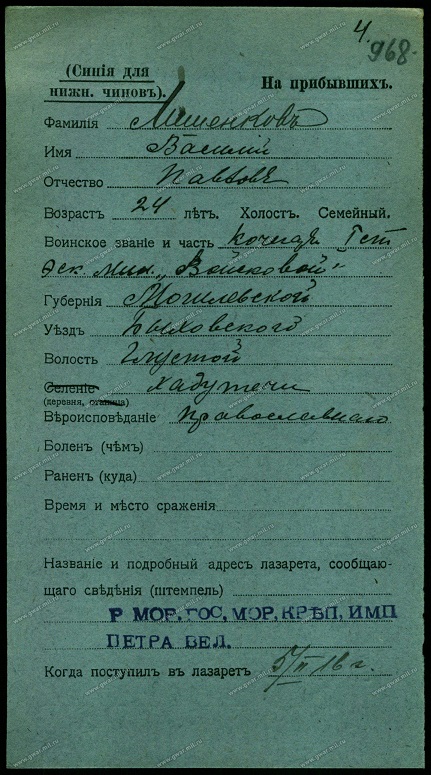 4.
968.
(Синія для
нижн. чиновъ).
На прибывшихъ.
Фамилія Мишенковъ
Имя Василій
Отчество Павловъ
Возрастъ 24 лѣтъ. Холостъ. Семейный.
Воинское званіе и часть кочегаръ I ст
эск. мин. „Войсковой"
Губернія Могилевской
Уѣздъ Быховскаго
Волость
Селеніе
(деревня, станица)
Вѣроисповѣданіе Православнаго
Боленъ (чѣмъ)
Раненъ (куда)
Время и мѣсто сраженія
Названіе и подробный адресъ лазарета, сообщаю-
щаго свѣдѣнія (штемпель)
Р МОР, ГОС, МОР, КРѢП, ИМП
ПЕТРА ВЕЛ.
Когда поступилъ въ лазаретъ 5/II 16 г.
www.gwar.mil.ru